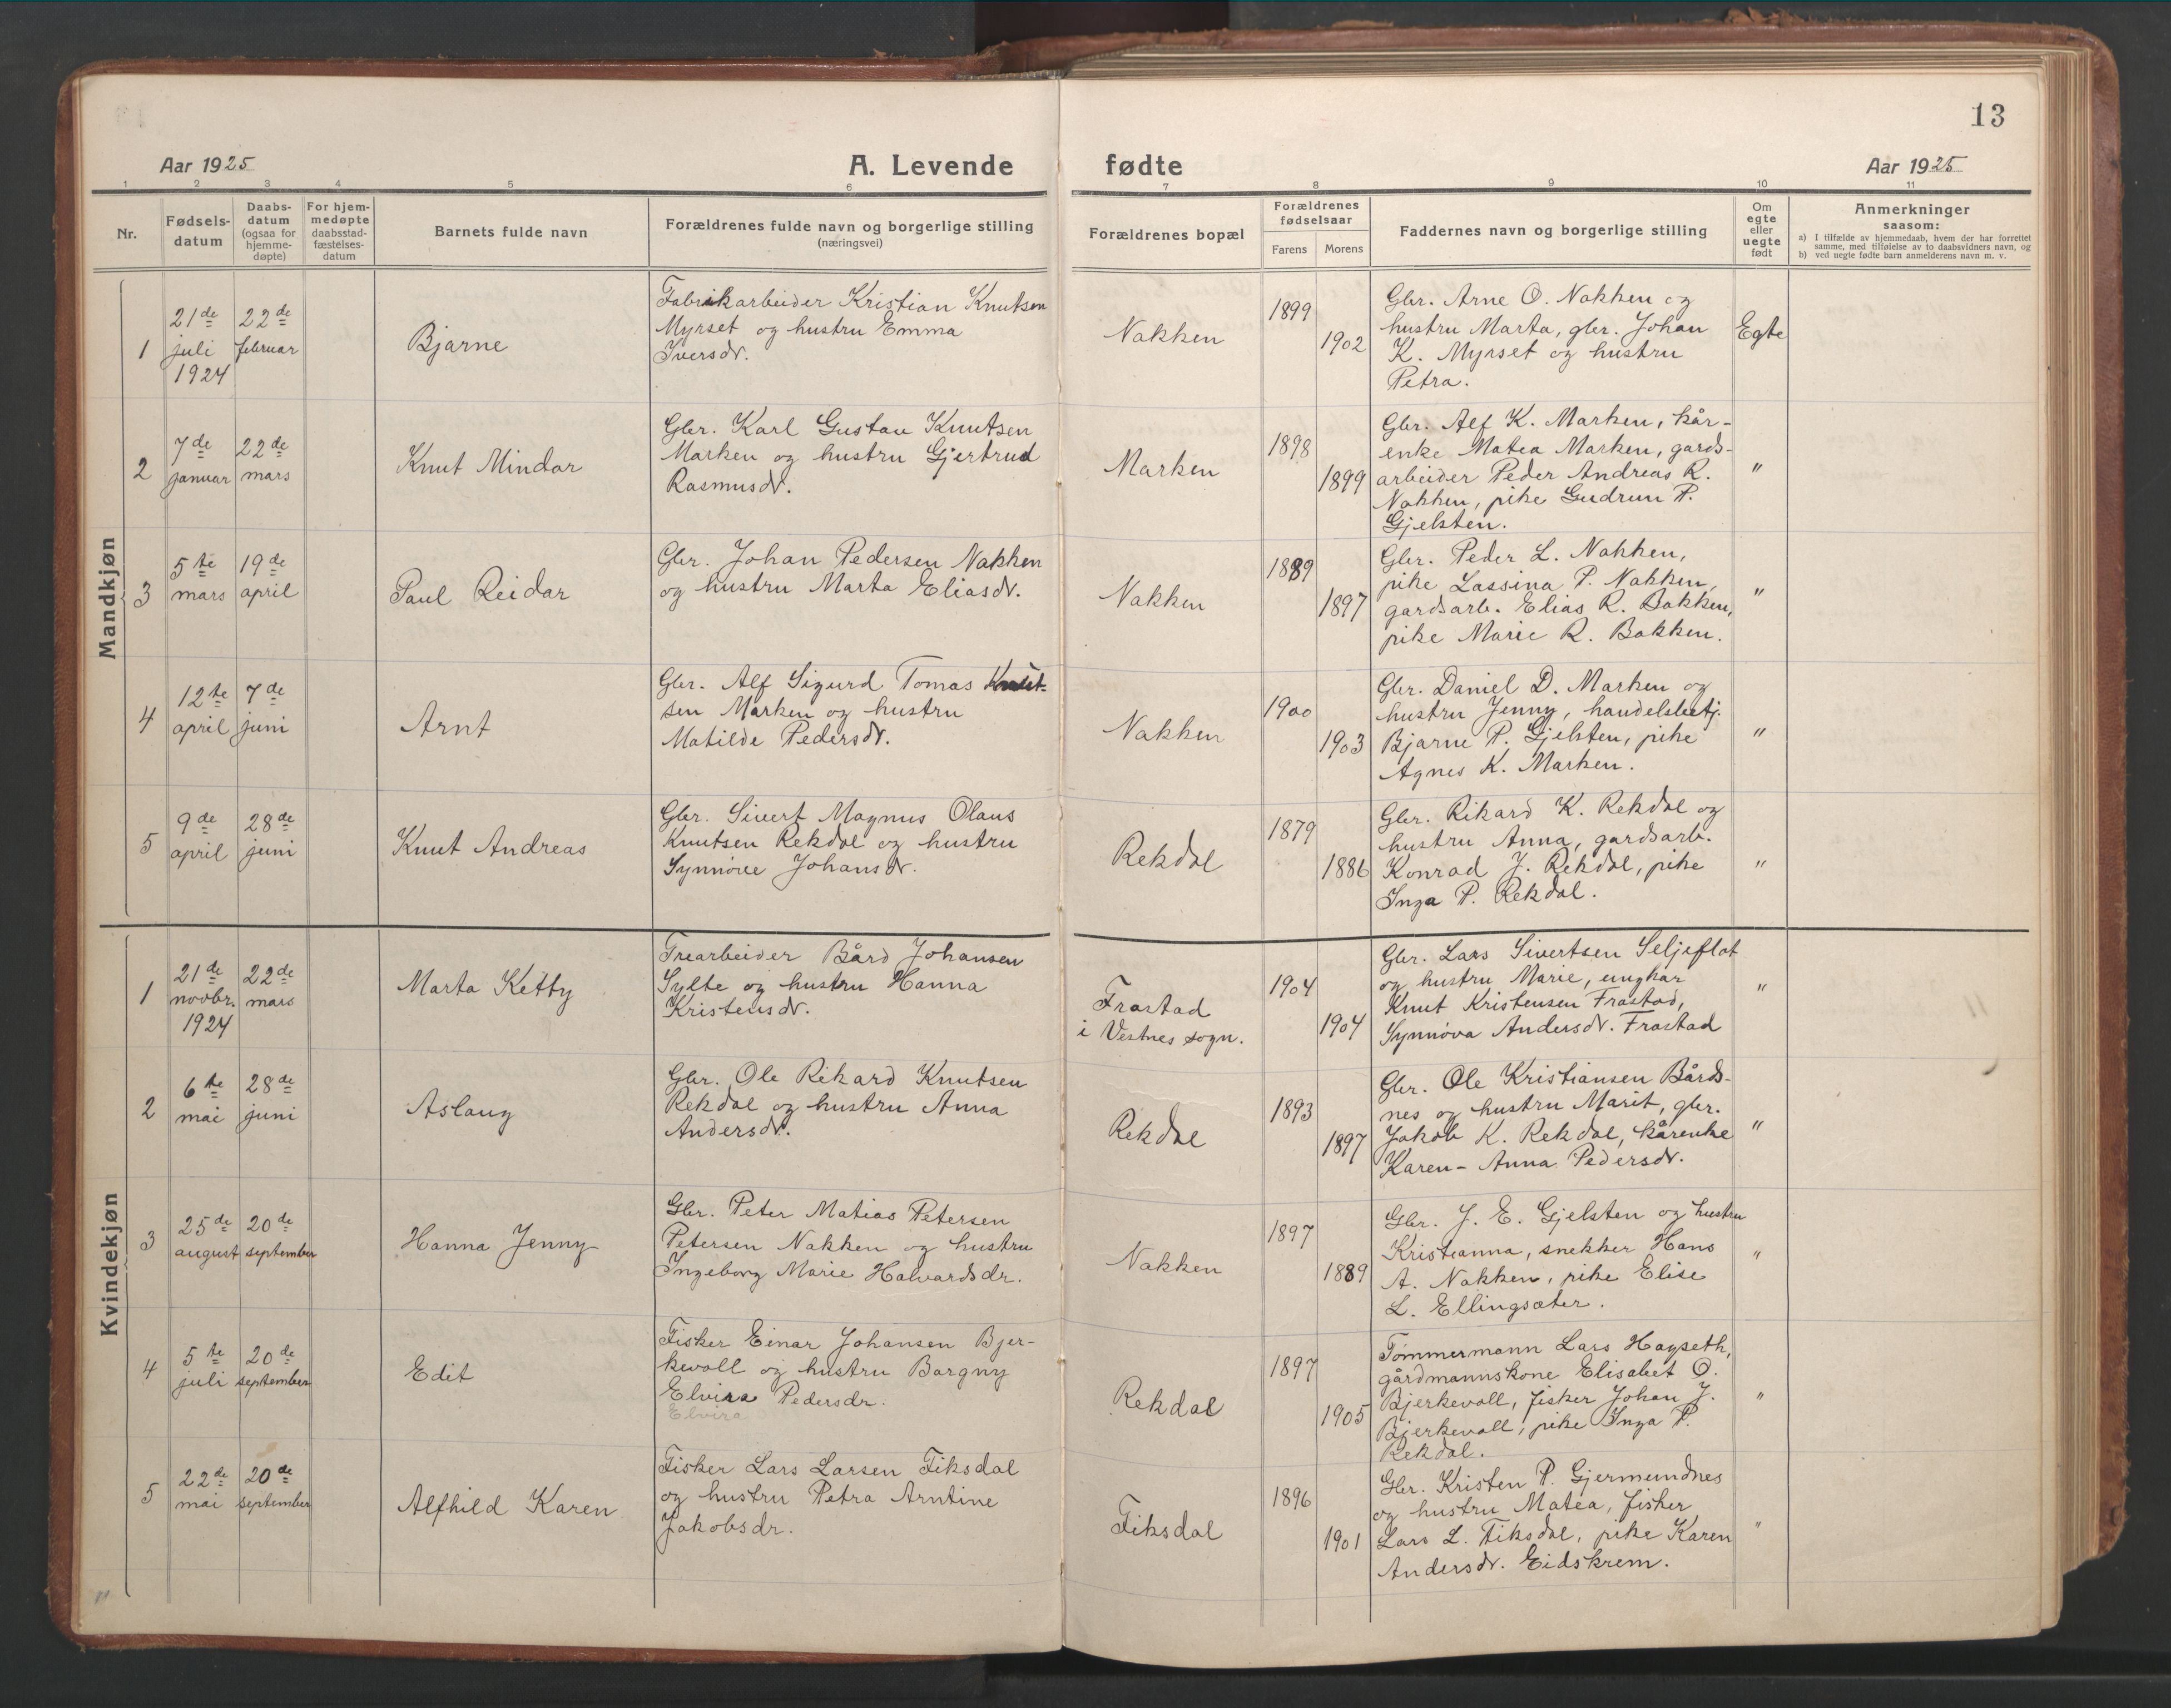 13
Aar 1925
A. Levende fødte
Aar 1925
1 2 3 4 5 6 7 8 9 10 11
Nr.
Fødsels-
datum
Daabs-
datum
(ogsaa for
hjemme-
døpte)
For hjem-
medøpte
daabsstad-
fæstelses-
datum
Barnets fulde navn
Forældrenes fulde navn og borgerlige stilling
(næringsvei)
Forældrenes bopæl
Forældrenes
fødselsaar
Farens
Morens
Faddernes navn og borgerlige stilling
Om
egte
eller
uegte
født
Anmerkninger
saasom:
a) I tilfælde av hjemmedaab, hvem der har forrettet
samme, med tilføielse av to daabsvidners navn, og
b) ved uegte fødte barn anmelderens navn m. v.
Mandkjøn
1
21de
juli
1924
22de
februar
Bjarne
Fabrikarbeider Kristian Knutsen
Myrset og hustru Emma
Iversdr.
Nakken
1899
1902
Gbr. Arne O. Nakken og
hustru Marta, gbr. Johan
K. Myrset og hustru
Petra.
Egte
2
7de
januar
22de
mars
Knut Mindor
Gbr. Karl Gustav Knutsen
Marken og hustru Gjertrud
Rasmusdr.
Marken
1898
1899
Gbr. Alf K. Marken, kår-
enke Matea Marken, gards-
arbeider Peder Andreas R.
Nakken, pike Gudrun P.
Gjelsten.
"
3
5te
mars
19de
april
Paul Reidar
Gbr. Johan Pedersen Nakken
og hustru Marta Eliasdr.
Nakken
1889
1897
Gbr. Peder L. Nakken,
pike Lassina P. Nakken,
gardsarb. Elias R. Bakken,
pike Marie R. Bakken.
"
4
12te
april
7de
juni
Arnt
Gbr. Alf Sigurd Tomas Knut-
sen Marken og hustru
Matilde Pedersdr.
Nakken
1900
1903
Gbr. Daniel D. Marken og
hustru Jenny, handelsbetj.
Bjarne P. Gjelsten, pike
Agnes K. Marken.
"
5
9de
april
28de
juni
Knut Andreas
Gbr. Sivert Magnus Olaus
Knutsen Rekdal og hustru
Synnøve Johansdr.
Rekdal
1879
1886
Gbr. Rikard K. Rekdal og
hustru Anna, gardsarb.
Konrad J. Rekdal, pike
Inga P. Rekdal.
"
Kvindekjøn
1
21de
novbr.
1924
22de
mars
Marta Ketty
Trearbeider Bård Johansen
Sylte og hustru Hanna
Kristensdr.
Frostad
i Vestnes sogn.
1904
1904
Gbr. Lars Sivertsen Seljeflot
og hustru Marie, ungkar
Knut Kristensen Frostad,
Synnøva Andersdr. Frostad
"
2
6te
mai
28de
juni
Aslaug
Gbr. Ole Rikard Knutsen
Rekdal og hustru Anna
Andersdr.
Rekdal
1893
1897
Gbr. Ole Kristiansen Bårds-
nes og hustru Marit, gbr.
Jakob K. Rekdal, kårenke
Karen-Anna Pedersdr.
"
3
25de
august
20de
september
Hanna Jenny
Gbr. Peter Matias Petersen
Petersen Nakken og hustru
Ingeborg Marie Halvardsdr.
Nakken
1897
1889
Gbr. J. E. Gjelsten og hustru
Kristianna, snekker Hans
A. Nakken, pike Elise
L. Ellingsæter.
"
4
5te
juli
20de
september
Edit
Fisker Einar Johansen Bjer-
kevoll og hustru Borgny
Elvira Pedersdr.
Elvira
Rekdal
1897
1905
Tømmermann Lars Hagseth,
gårdmannskone Elisabet O.
Bjerkevoll, fisker Johan J.
Bjerkevoll, pike Inga P.
Rekdal.
"
5
22de
mai
20de
september
Alfhild Karen
Fisker Lars Larsen Fiksdal
og hustru Petra Arntine
Jakobsdr.
Fiksdal
1896
1901
Gbr. Kristen P. Gjermundnes
og hustru Matea, fisker
Lars L. Fiksdal, pike Karen
Andersdr. Eidskrem.
"